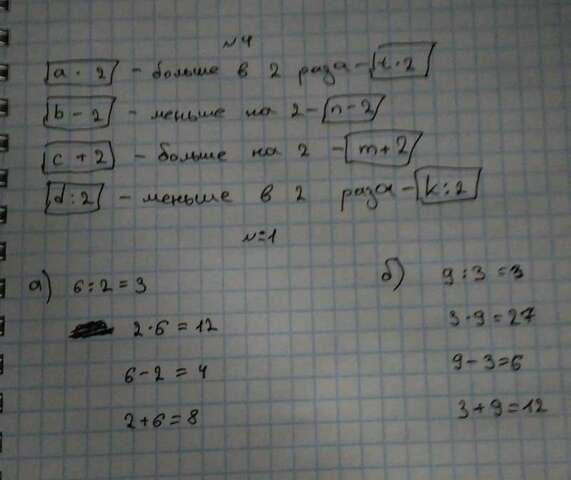 №4
a · 2 - больше в 2 раза - t · 2
b - 2 - меньше на 2 - n - 2
c + 2 - больше на 2 - m + 2
d : 2 - меньше в 2 раза - k : 2
№1
а) 6 : 2 = 3 б) 9 : 3 = 3
2 · 6 = 12 3 · 9 = 27
6 - 2 = 4 9 - 3 = 6
2 + 6 = 8 3 + 9 = 12